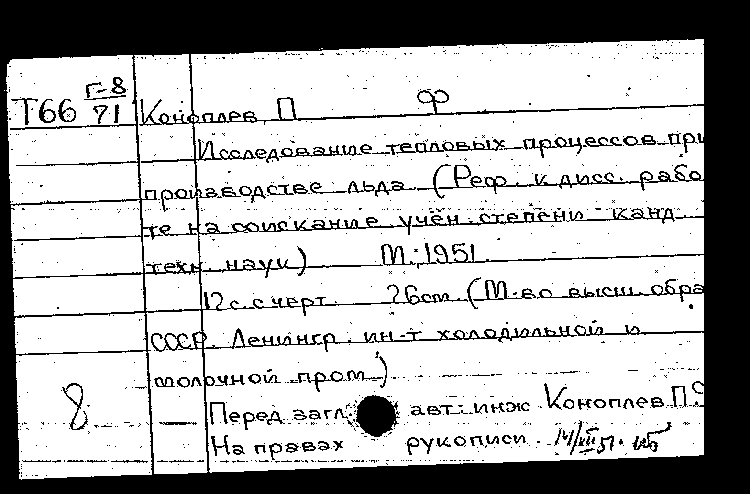 Г-8
Т66 71 Коноплев, П Ф
Исследование тепловых процессов при
производстве льда. (Реф. к дисс. рабо
те на соискание учён. степени канд
техн. наук) М., 1951
12 с. с черт. 26 cm. (М-во высш. обра
СССР. Ленингр. ин-т холодильной и
молочной пром.)
8 Перед загл. авт: инж. Коноплев П.Ф
На правах рукописи.